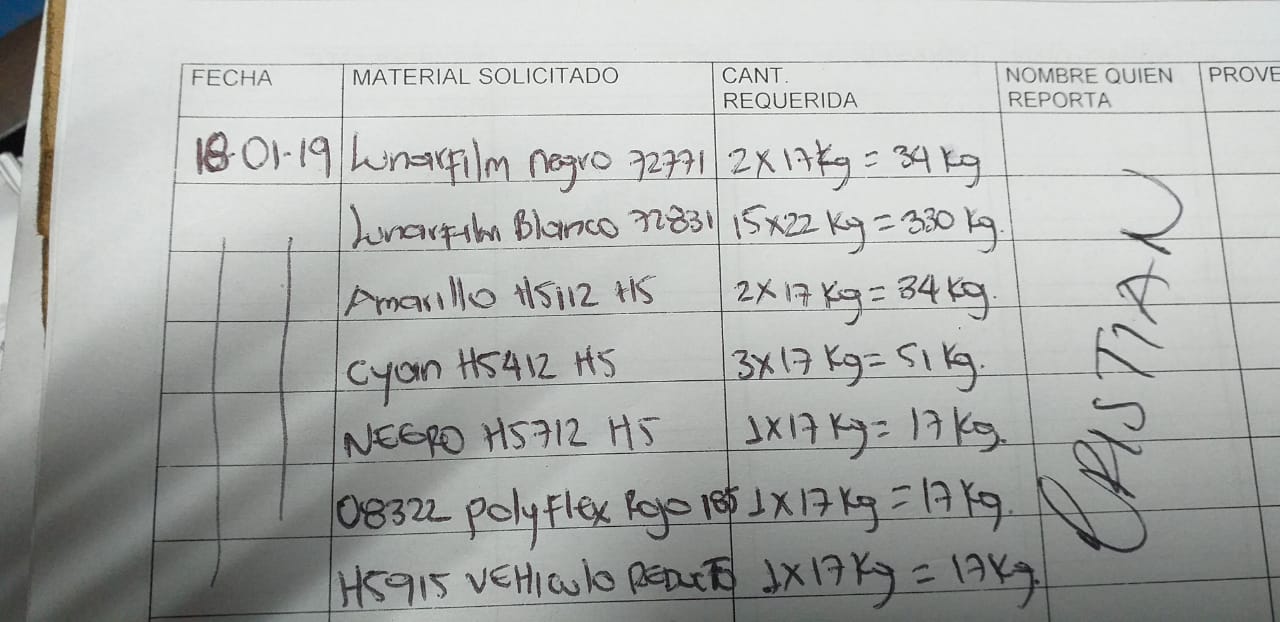 FECHA MATERIAL SOLICITADO CANT. REQUERIDA NOMBRE QUIEN REPORTA PROVE
18-01-19 Lunarfilm negro 72771 2x17Kg = 34 Kg
Lunarfilm Blanco 72831 15x22 Kg = 330 Kg.
Amarillo H5112 H5 2x17 Kg = 34 Kg.
Cyan H5412 H5 3x17 Kg = 51 Kg.
NEGRO H5712 H5 1x17 Kg = 17 Kg.
08322 polyFlex Rojo 185 1x17Kg = 17 Kg.
H5915 VEHiculo REDucTo 1x17Kg = 17Kg.
CRISTIAN